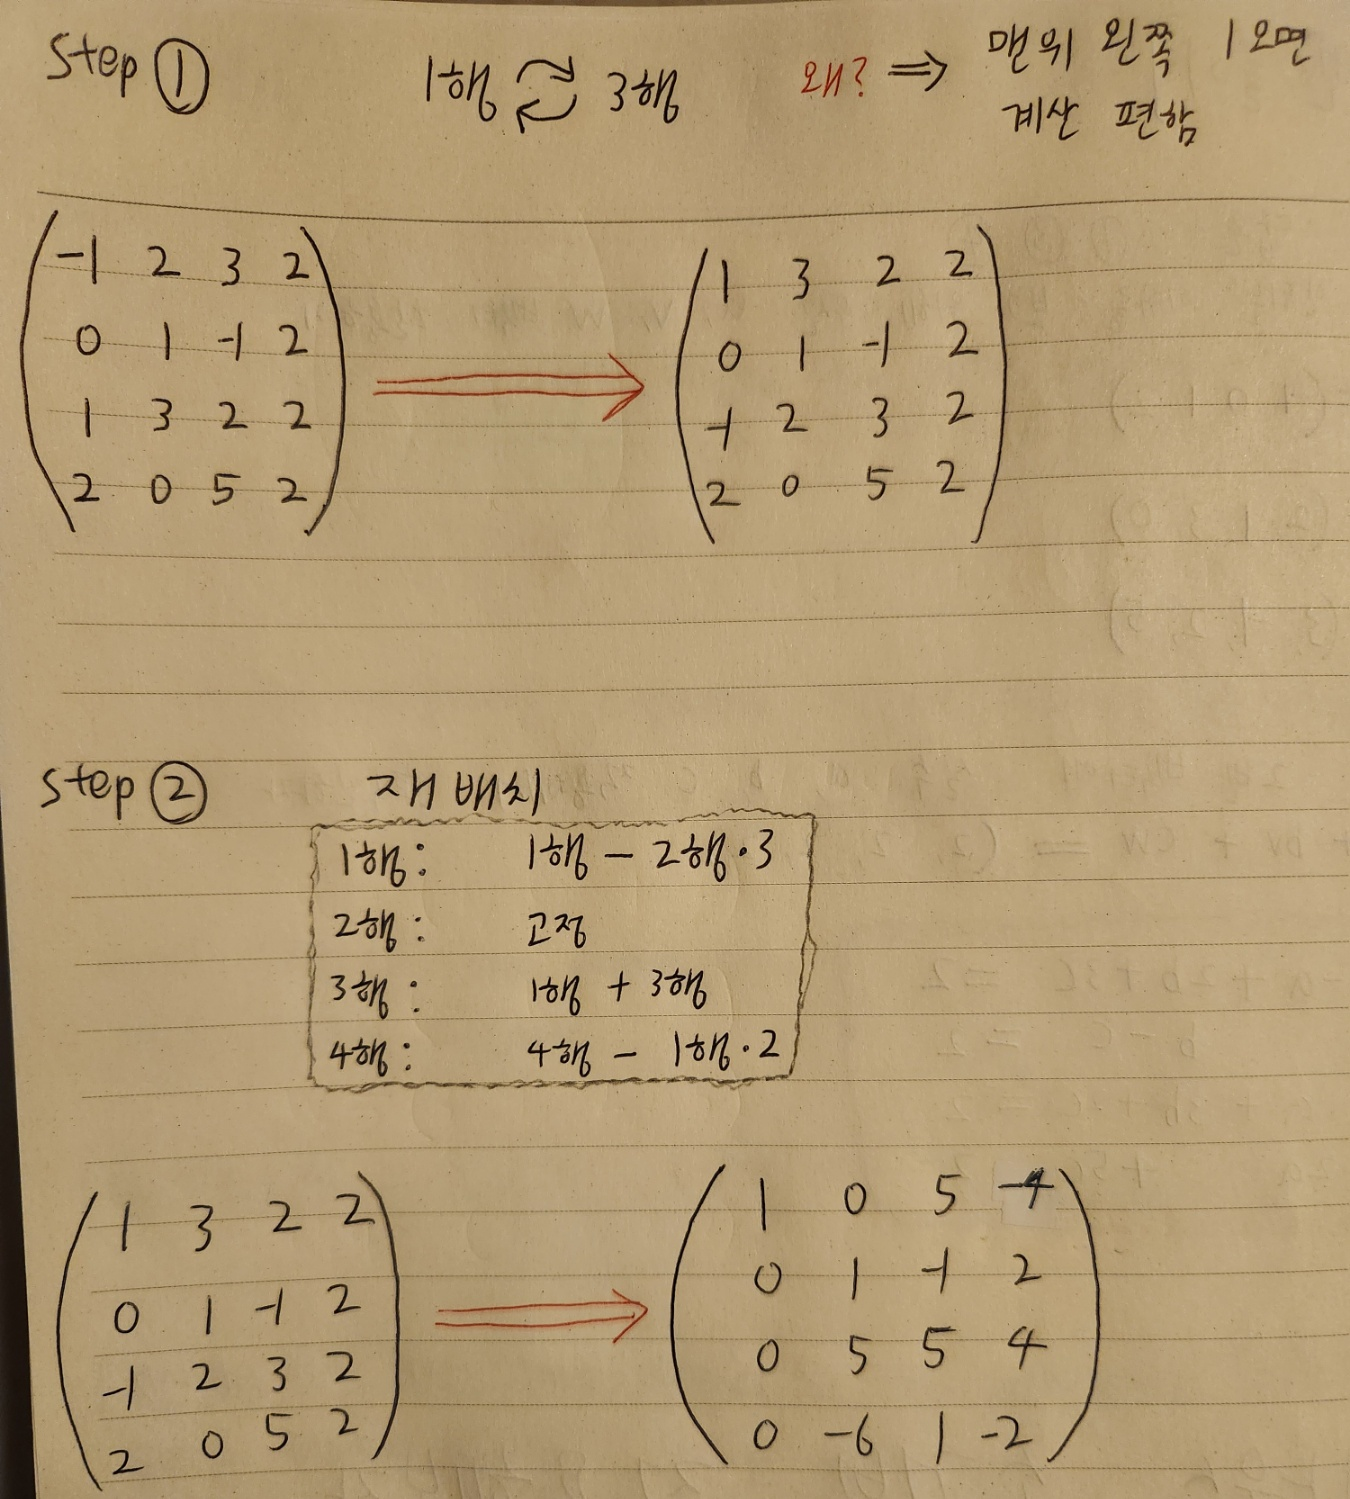 Step ① 1행 ⇄ 3행 왜? ⇒ 맨위 왼쪽 1오면
계산 편함
-1 2 3 2
0 1 -1 2
1 3 2 2
2 0 5 2
⇒
1 3 2 2
0 1 -1 2
-1 2 3 2
2 0 5 2
Step ② 재배치
1행: 1행 - 2행·3
2행: 고정
3행: 1행 + 3행
4행: 4행 - 1행·2
1 3 2 2
0 1 -1 2
-1 2 3 2
2 0 5 2
⇒
1 0 5 -4
0 1 -1 2
0 5 5 4
0 -6 1 -2